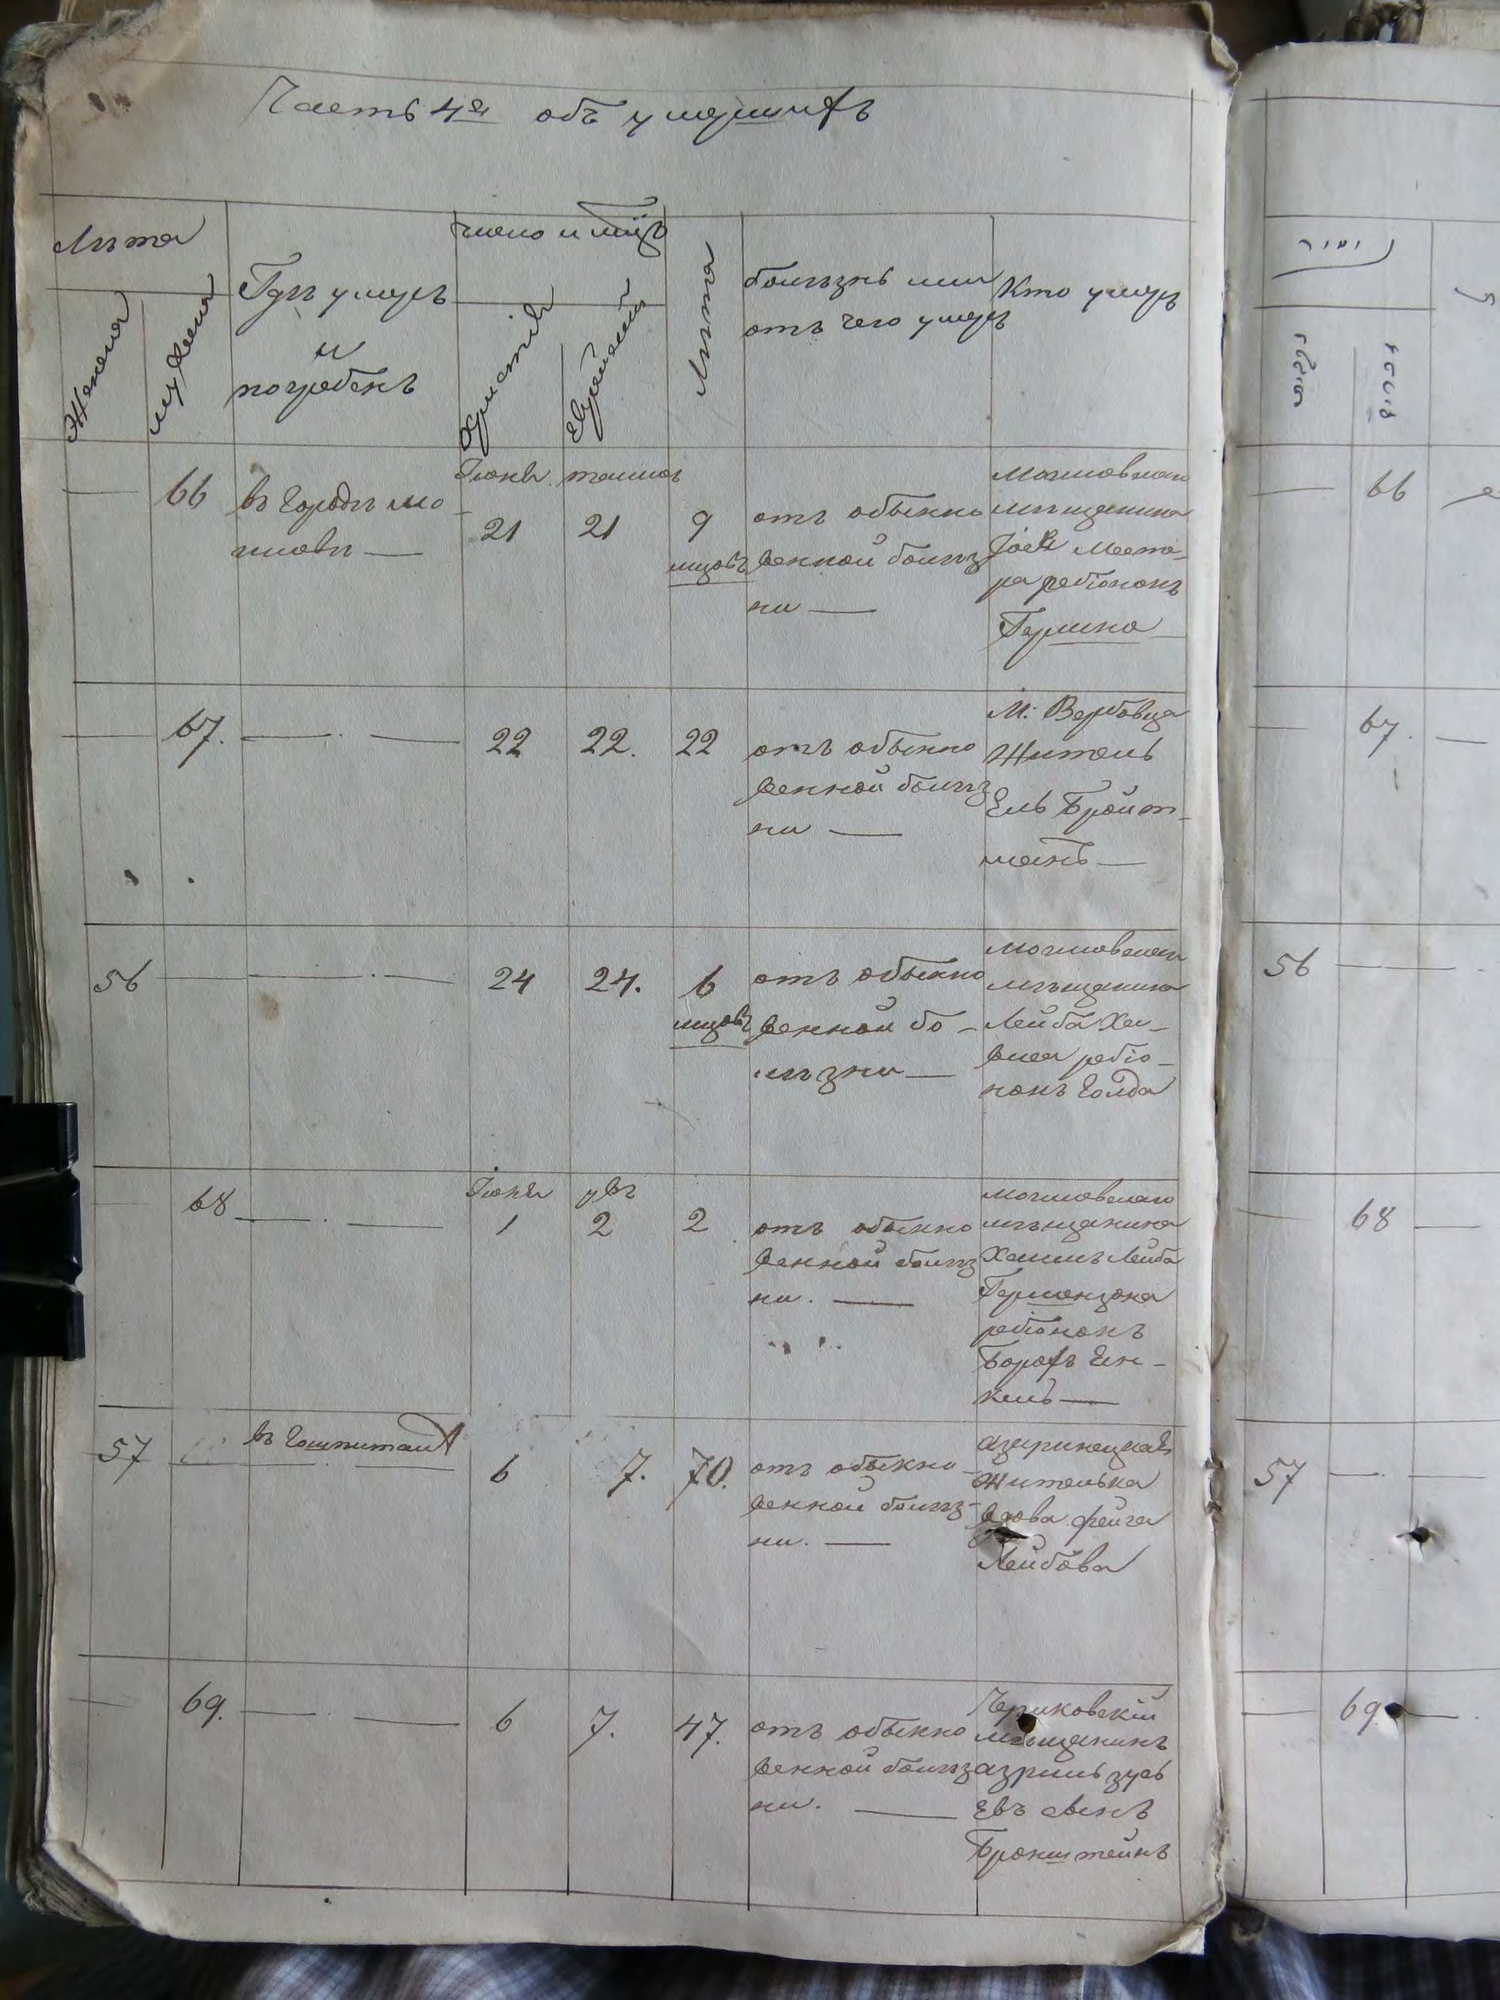 Часть 4я объ умершихъ
Лѣта
Женска
мужеска
Гдѣ умеръ
и
погребенъ
число и мѣцъ
Христіан
Еврейскій
Лѣта
болѣзнь или
отъ чего умеръ
Кто умеръ
— 66 въ городѣ мо-
гилевѣ —
Іюня
21 21 9
мцовъ
отъ обыкно
венной болѣз
ни —
могилевскаго
мѣщанина
ра ребіонокъ
— 67. — . — 22 22. 22
отъ обыкно
венной болѣз
ни —
М: Вербовца
Житель
Ель Бройт-
манъ —
56 — . — 24 24. 6
мцовъ
отъ обыкно
венной бо-
лѣзни —
могилевскаго
мѣщанина
Лейба Ха-
ребіо-
нокъ Голда
68 — . — Іюля
1 2 2
отъ обыкно
венной болѣз
ни. —
могилевскаго
мѣщанина
Хаимъ Лейба
ребіонокъ
Борохъ Ен-
кель —
57 въ Гошпиталѣ
— . — 6 7. 70.
отъ обыкно-
венной болѣз-
ни. —
Жителька
вдова фейга
Лейбова
— 69. — . — 6 7. 47.
отъ обыкно
венной болѣз
ни. —
Чериковскій
мѣщанинъ
азриль зусь
Бронштейнъ
— 66
— 67. —
56 — —
— 68 —
57 — . —
— 69. —